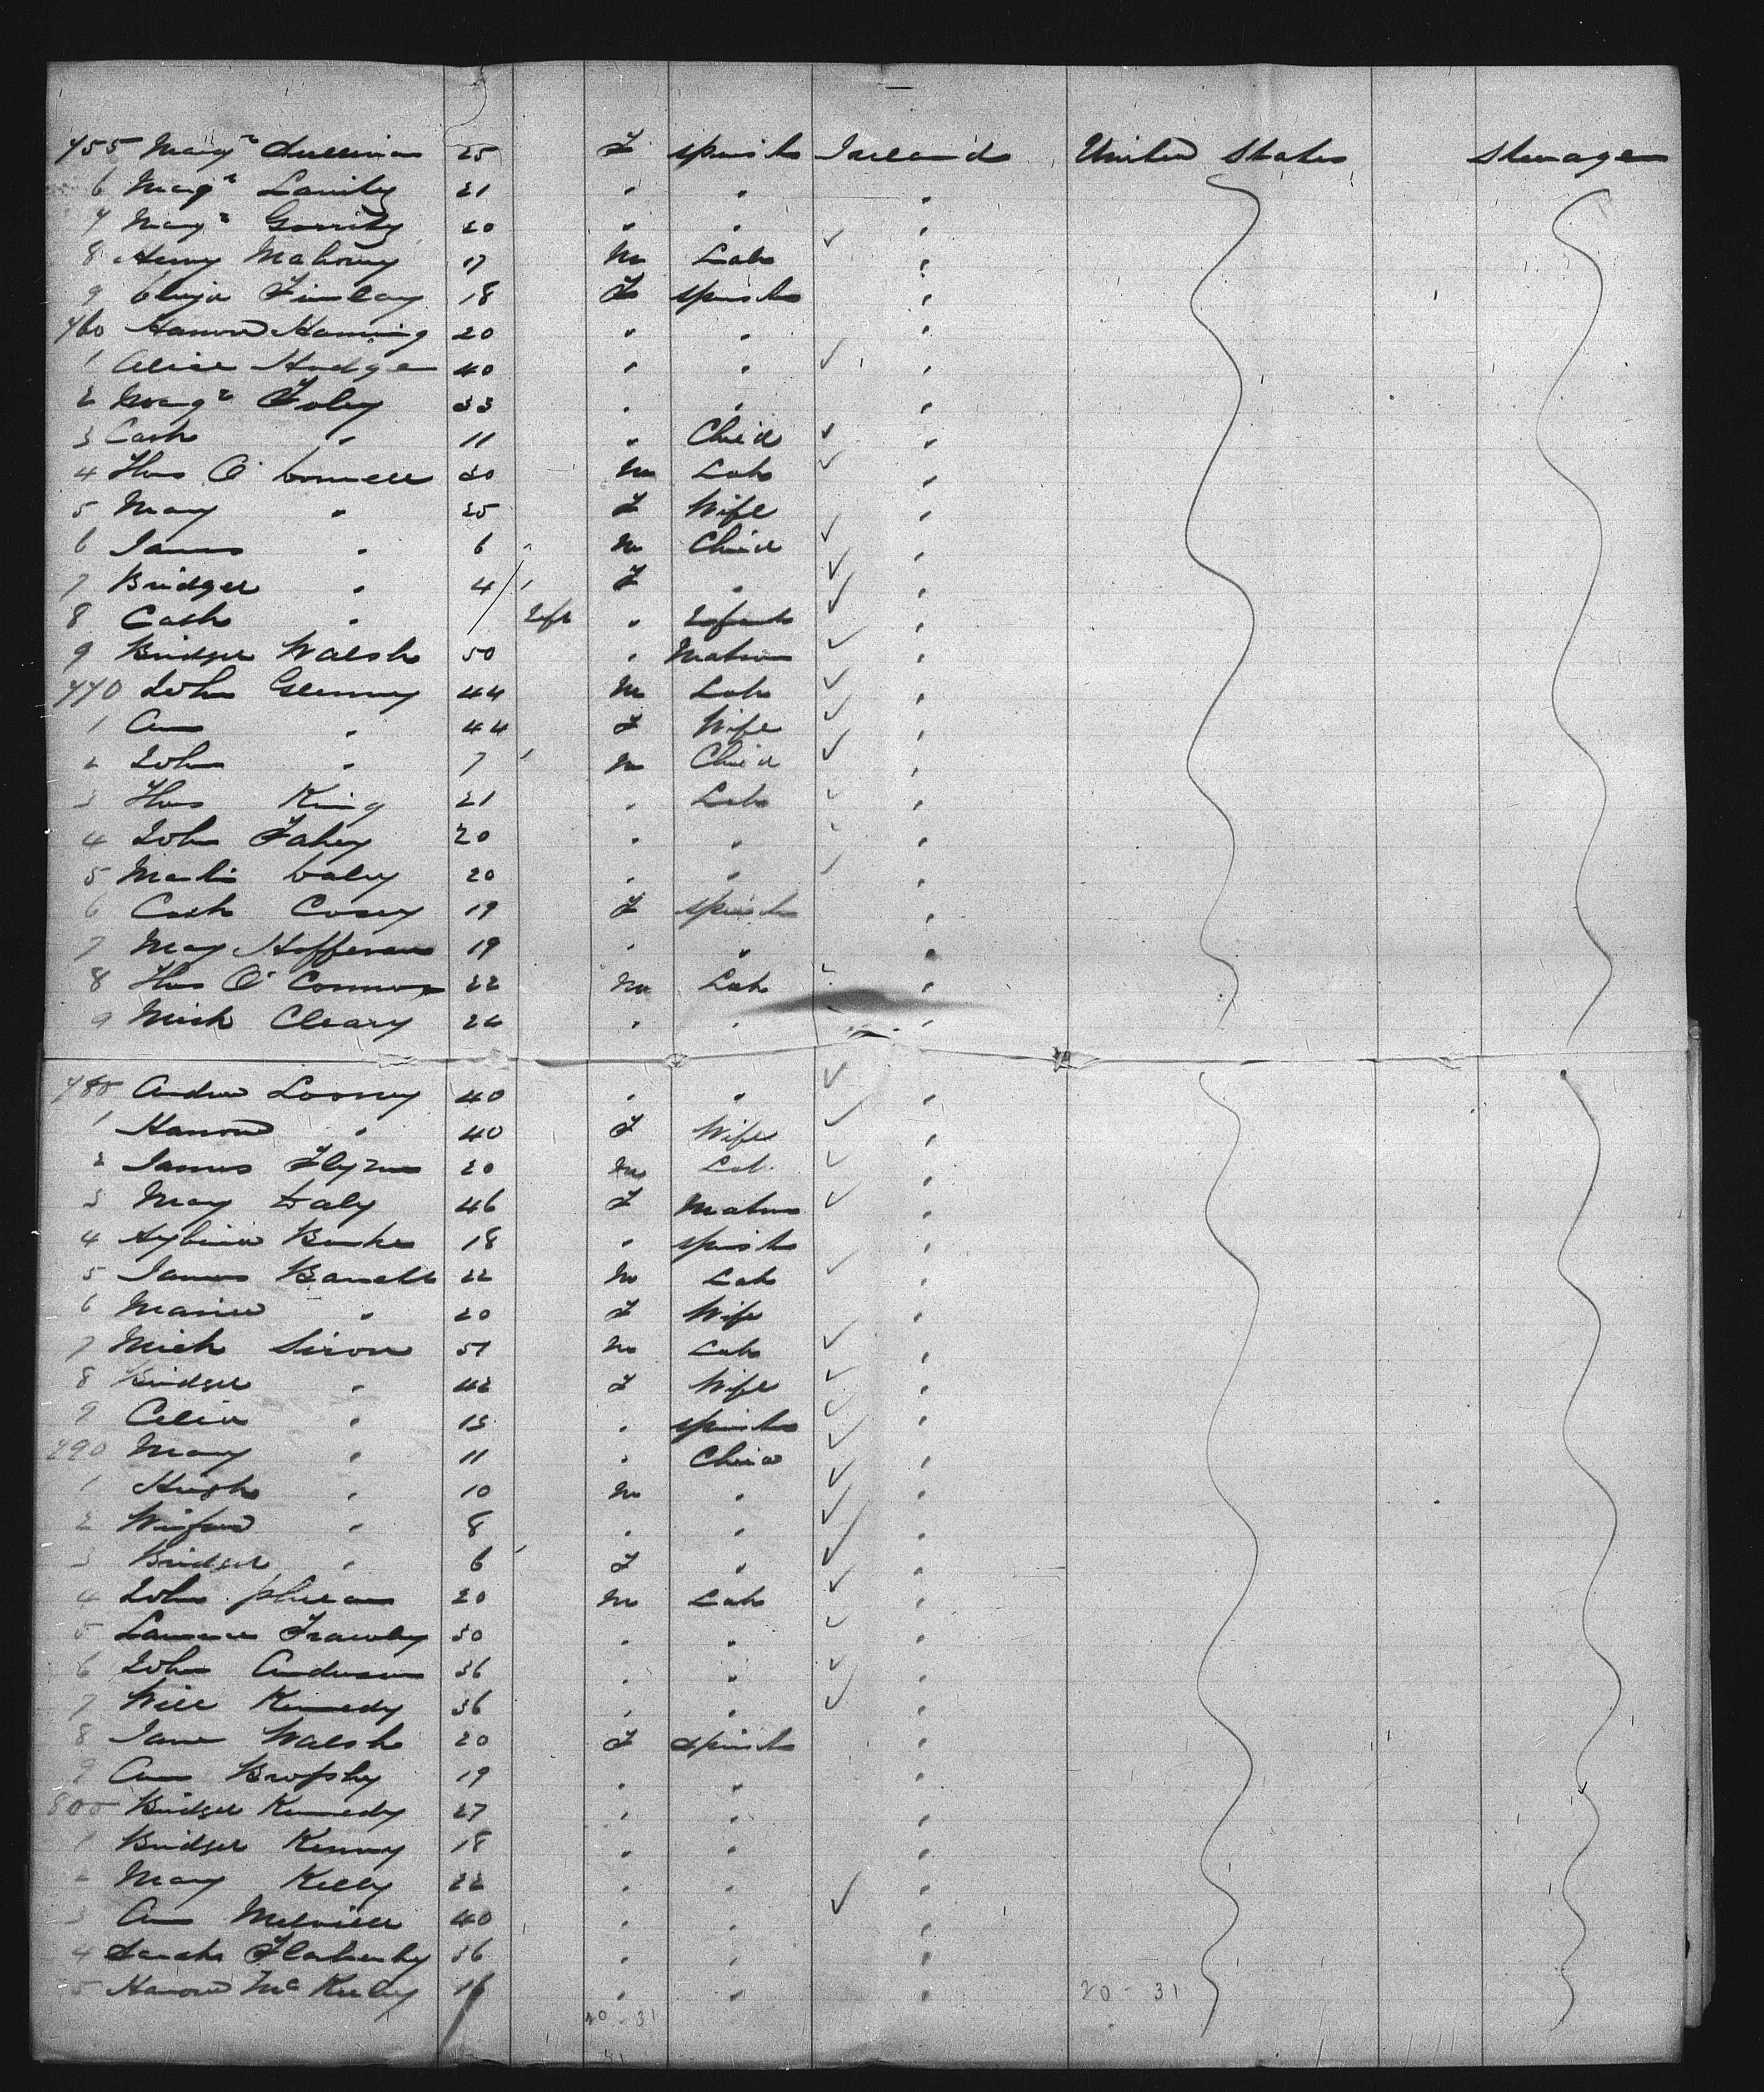 755 Margt Sullivan 25 F Spinstr Ireland United States Steerage
6 Margt 21 " " "
7 Margt Garrity 20 " " "
8 Henry Mahoney 17 M Labr "
9 Finlay 18 F Spinstr "
760 Hanora 20 " " "
1 Alice Hodge 40 " " "
2 Margt Foley 33 " " "
3 Cath " 11 " Child "
4 Thos O'Connell 30 M Labr "
5 Mary " 25 F Wife "
6 James " 6 M Child "
7 Bridget " 4 F " "
8 Cath " Inft " Infant "
9 Bridget Walsh 50 " Matron "
770 John Glenny 44 M Labr "
1 Ann " 44 F Wife "
2 John " 7 M Child "
3 Thos King 21 " Labr "
4 John Fahey 20 " " "
5 Martin Daley 20 " " "
6 Cath Casey 19 F Spinstr "
7 Mary Heffernan 19 " " "
8 Thos O'Connor 22 M Labr "
9 Mich Cleary 24 " " "
780 Andrew Looney 40 " " "
1 Hanora " 40 F Wife "
2 James Flynn 20 M Lab "
3 Mary Daly 46 F Matron "
4 Burke 18 " Spinstr "
5 James Barrett 22 M Lab "
6 Maria " 20 F Wife "
7 Mich 51 M Lab "
8 Bridget " 42 F Wife "
9 Celia " 13 " Spinstr "
790 Mary " 11 " Child "
1 Hugh " 10 M " "
2 Winford " 8 " " "
3 Bridget " 6 F " "
4 John Phelan 20 M Lab "
5 Laurence Frawley 30 " " "
6 John Anderson 36 " " "
7 Will Kennedy 36 " " "
8 Jane Walsh 20 F Spinstr "
9 Ann Brophy 19 " " "
800 Bridget Kennedy 27 " " "
1 Bridget Kenny 18 " " "
2 Mary Kelly 22 " " "
3 Ann Melville 40 " " "
4 Sarah Flaherty 36 " " "
5 Hanora 16 " " "
20-31 20-31